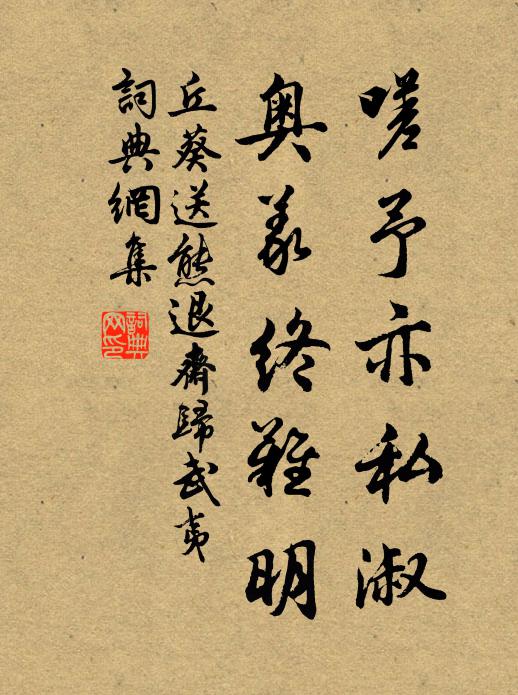 嗟予亦私淑
奧義終難明
丘葵送熊退齋歸武夷
詞典網集
詞典
网印